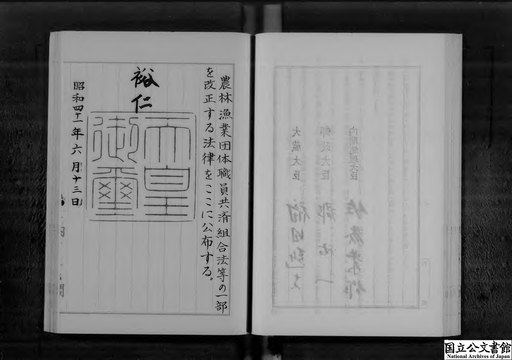 農林漁業団体職員共済組合法等の一部
を改正する法律をここに公布する。
裕仁
天皇
御璽
昭和四十一年六月十三日
内閣総理大臣
郵政大臣
大蔵大臣
国立公文書館
National Archives of Japan